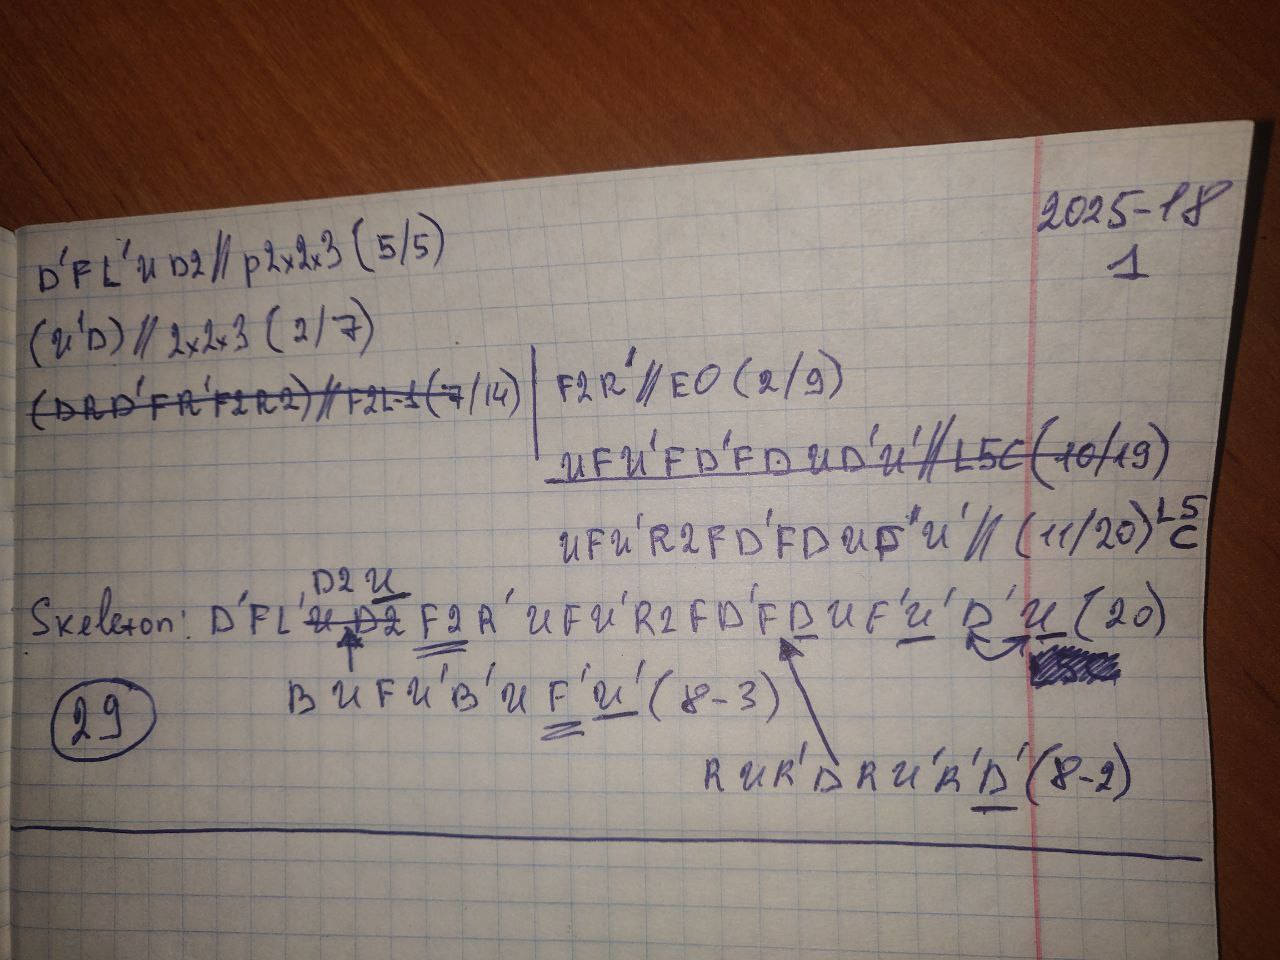 2025-18
1
D'FL'U D2 // p2x2x3 (5/5)
(U'D) // 2x2x3 (2/7)
(DRD'FR'F2R2) // F2L-1 (7/14)
F2R' // EO (2/9)
UFU'FD'FDUD'U' // L5C (10/19)
UFU'R2FD'FDUF'U' // (11/20) L5C
D2 U
Skeleton: D'FL' U D2 F2 R' U F U' R2 F D' F D U F' U' D' U (20)
BUFU'B'UF'U' (8-3)
29
RUR'DRU'R'D' (8-2)